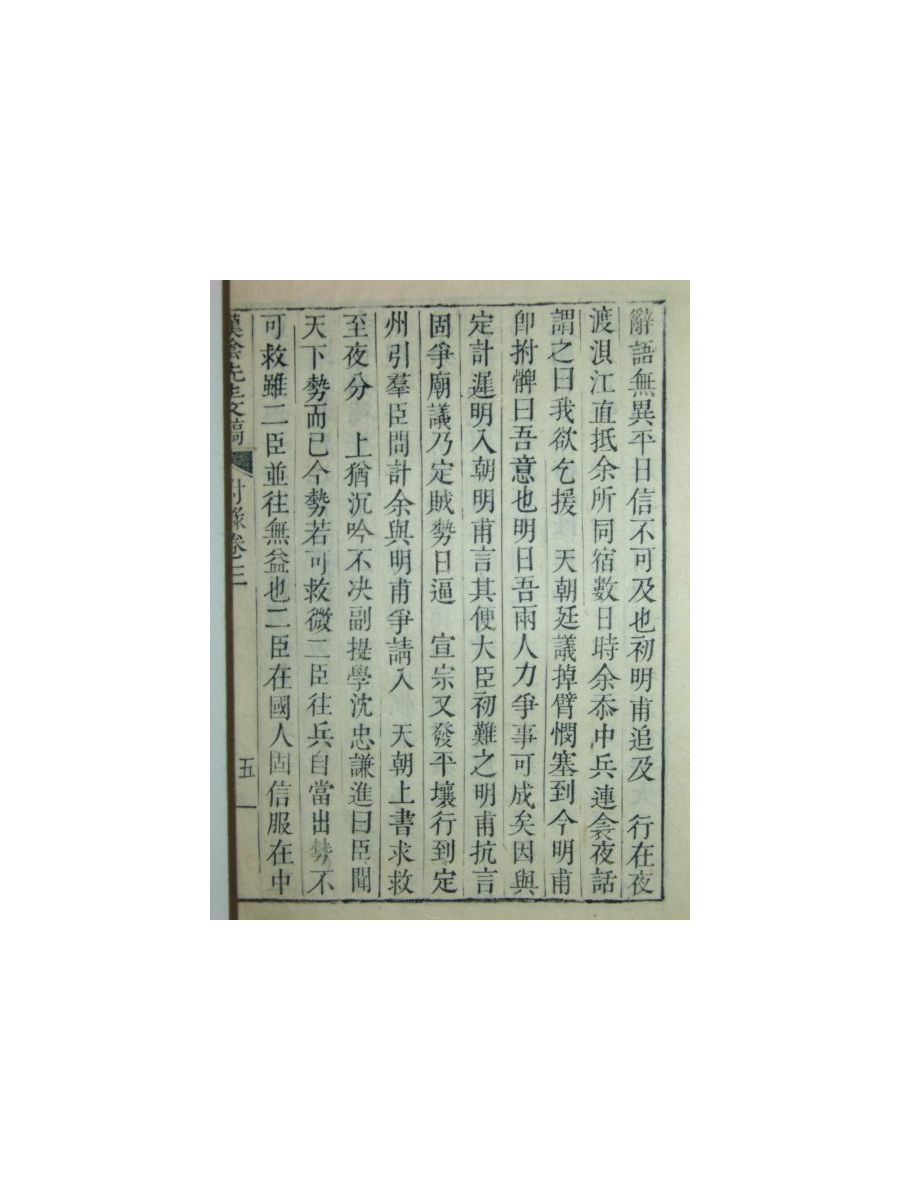 辭語無異平日信不可及也初明甫追及 行在夜
渡浿江直抵余所同宿數日時余忝中兵連衾夜話
謂之曰我欲乞援 天朝廷議掉臂憫塞到今明甫
卽拊髀曰吾意也明日吾兩人力爭事可成矣因與
定計遲明入朝明甫言其便大臣初難之明甫抗言
固爭廟議乃定賊勢日逼 宣宗又發平壤行到定
州引羣臣問計余與明甫爭請入 天朝上書求救
至夜分 上猶沉吟不决副提學沈忠謙進曰臣聞
天下勢而已今勢若可救微二臣往兵自當出勢不
可救雖二臣並往無益也二臣在國人固信服在中
漢陰先生文稿 附錄卷三 五